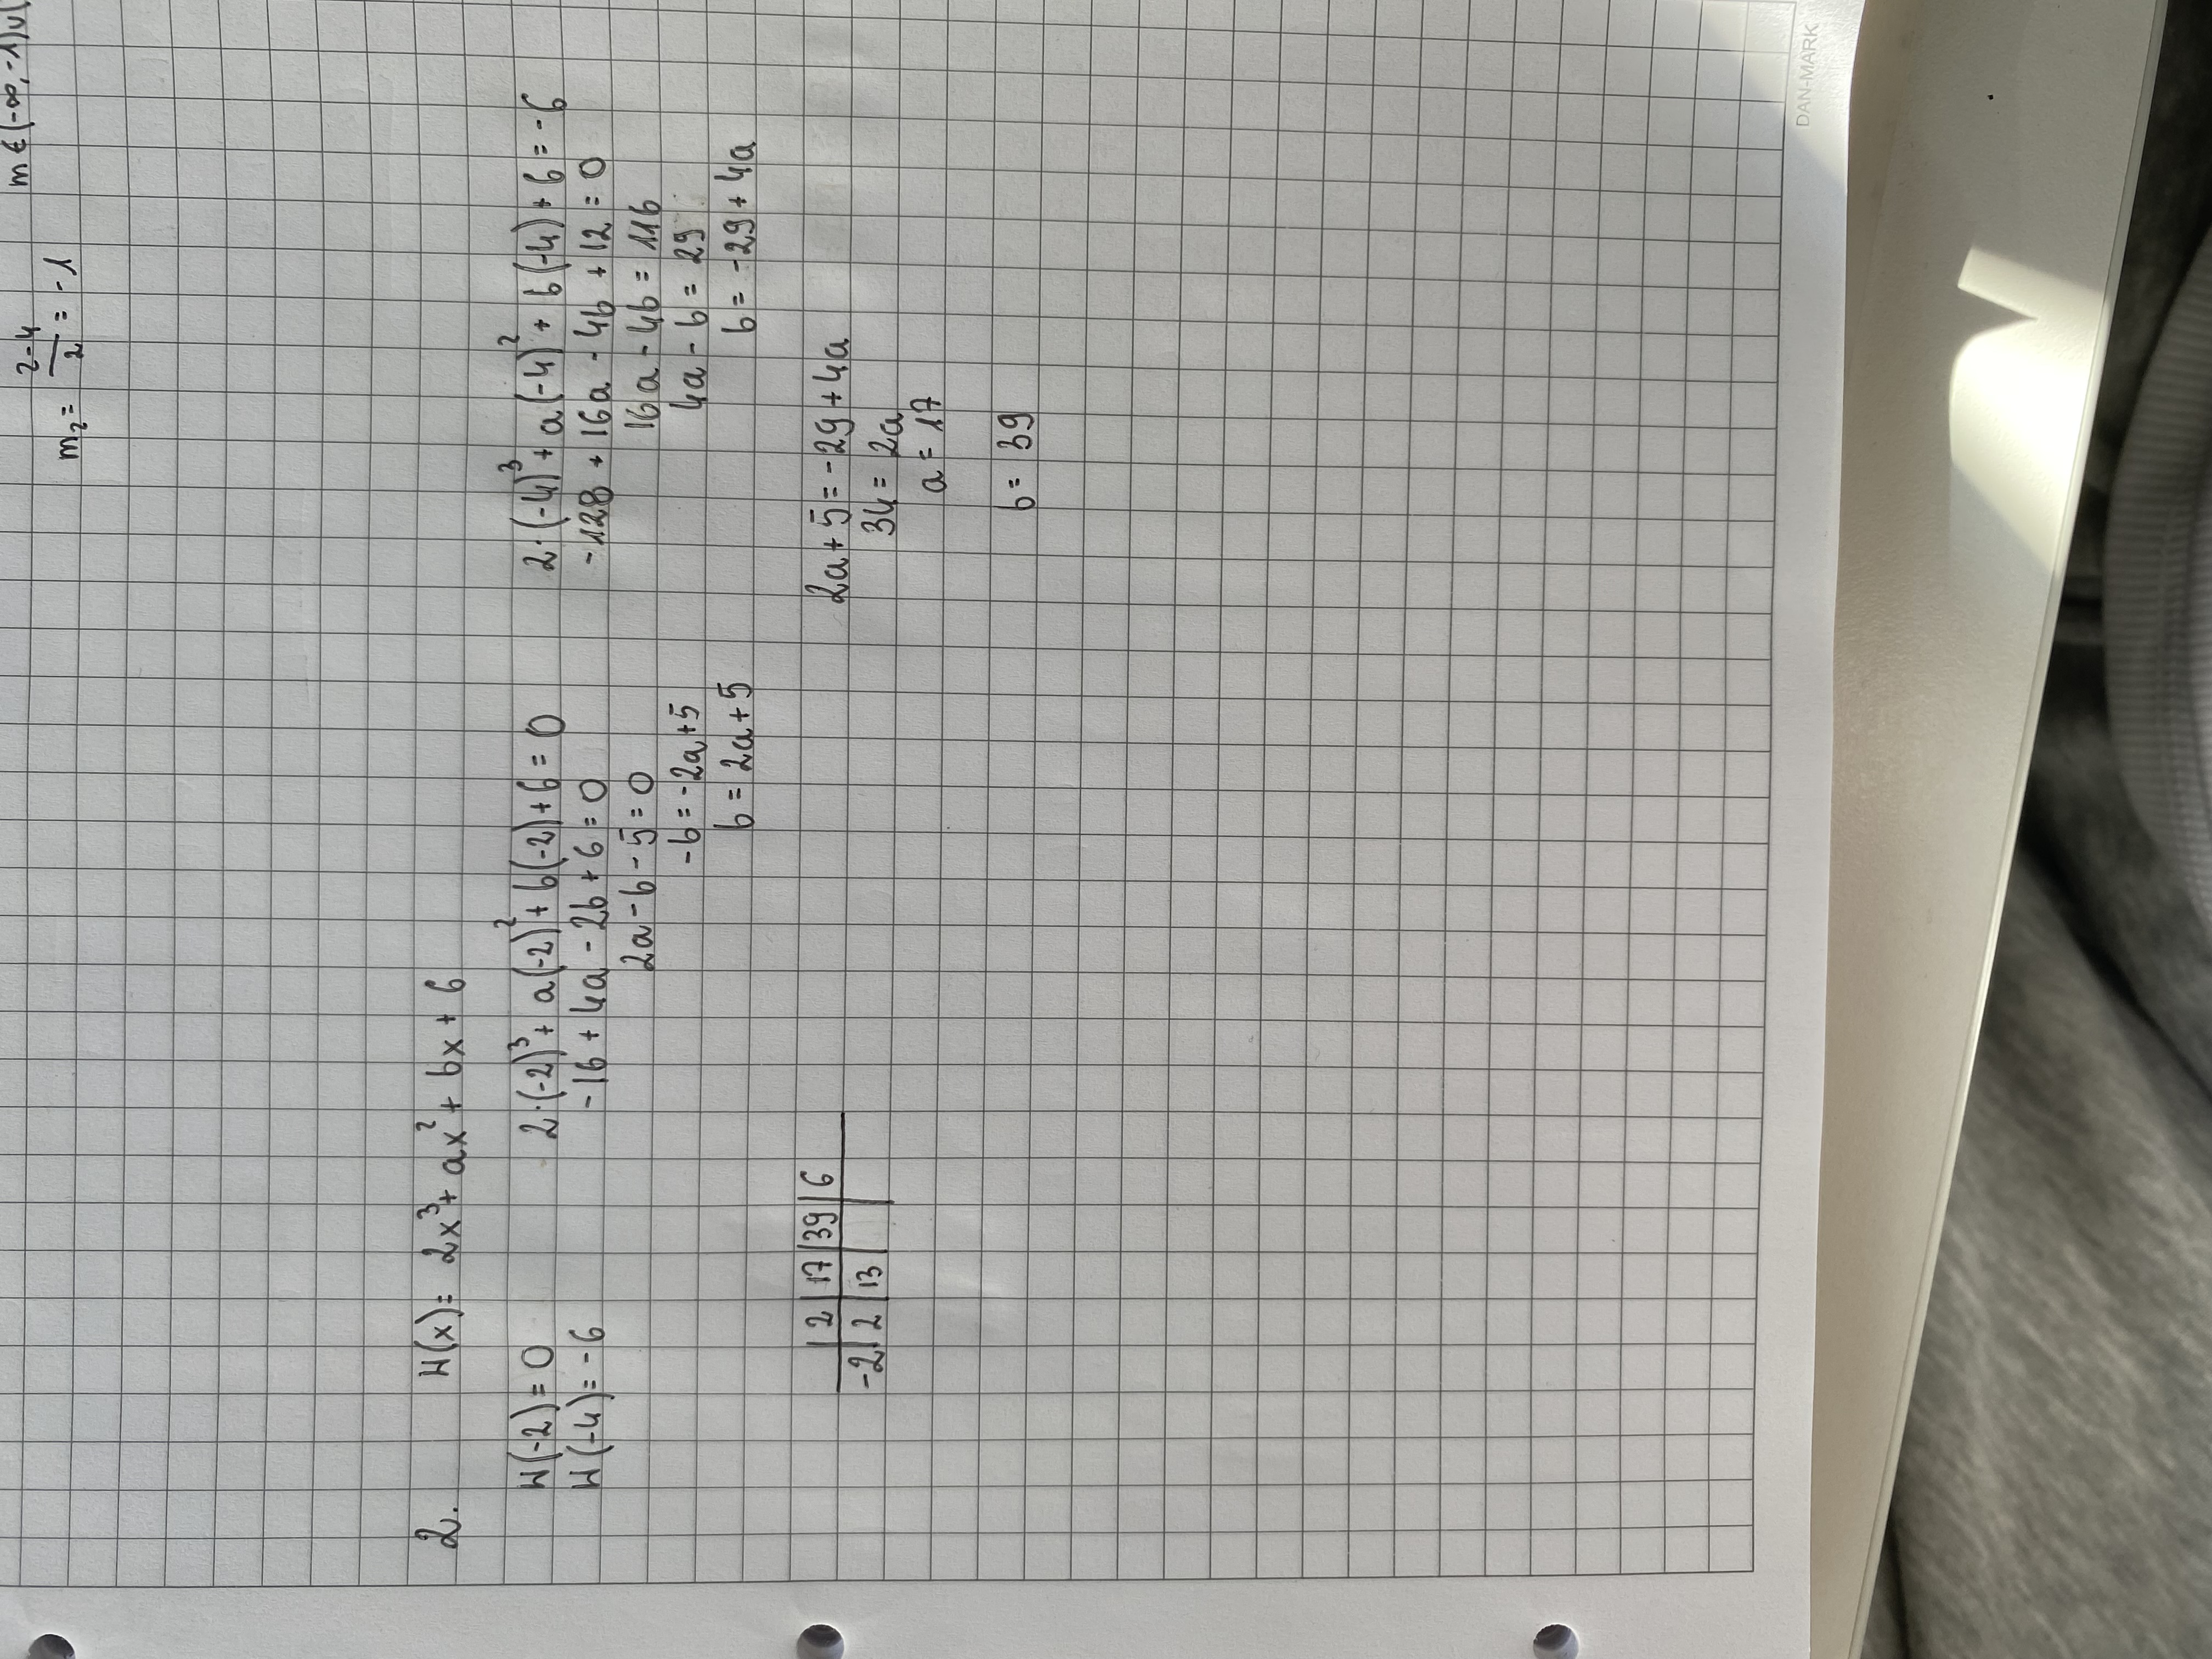 m₂ = (2-4)/2 = -1 m ∈ (-∞, -1) ∪ (
2. W(x) = 2x³ + ax² + bx + 6
W(-2) = 0 2·(-2)³ + a(-2)² + b(-2) + 6 = 0 2·(-4)³ + a(-4)² + b(-4) + 6 = -6
W(-4) = -6 -16 + 4a - 2b + 6 = 0 -128 + 16a - 4b + 12 = 0
2a - b - 5 = 0 16a - 4b = 116
-b = -2a + 5 4a - b = 29
b = 2a + 5 b = -29 + 4a
| 2 | 17 | 39 | 6 2a + 5 = -29 + 4a
-2 | 2 | 13 | | 34 = 2a
a = 17
b = 39
DAN-MARK